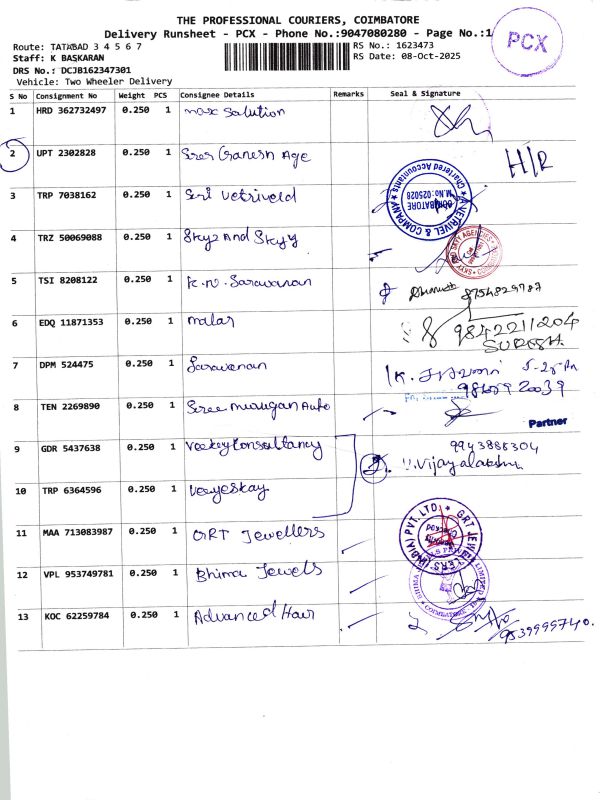 THE PROFESSIONAL COURIERS, COIMBATORE
Delivery Runsheet - PCX - Phone No.:9047080280 - Page No.:1
PCX
Route: TATABAD 3 4 5 6 7
RS No.: 1623473
Staff: K BASKARAN
RS Date: 08-Oct-2025
DRS No.: DCJB162347301
Vehicle: Two Wheeler Delivery
S No Consignment No Weight PCS Consignee Details Remarks Seal & Signature
1 HRD 362732497 0.250 1 max Solution
2 UPT 2302828 0.250 1 Sree Ganesh Age H/R
3 TRP 7038162 0.250 1 Sri Vetriveld
A.VETRIVEL & COMPANY
Chartered Accountants
M.No:025028
COIMBATORE
4 TRZ 50069088 0.250 1 Sky2 And Skyy
SKYY AND SKY AGENCIES
5 TSI 8208122 0.250 1 K.N. Saravanan 8754829787
6 EDQ 11871353 0.250 1 malar 9842211204
SURESH.
7 DPM 524475 0.250 1 Saravanan
8 TEN 2269890 0.250 1 Sree murugan Auto
Partner
9 GDR 5437638 0.250 1 Veekey Consultancy 9943886304
V.Vijayalakshmi
10 TRP 6364596 0.250 1 Veeyeskay
11 MAA 713083987 0.250 1 GRT Jewellers
GRT JEWELLERS (INDIA) PVT. LTD.
12 VPL 953749781 0.250 1 Bhima Jewels
13 KOC 62259784 0.250 1 Advanced Hair
9539999740.